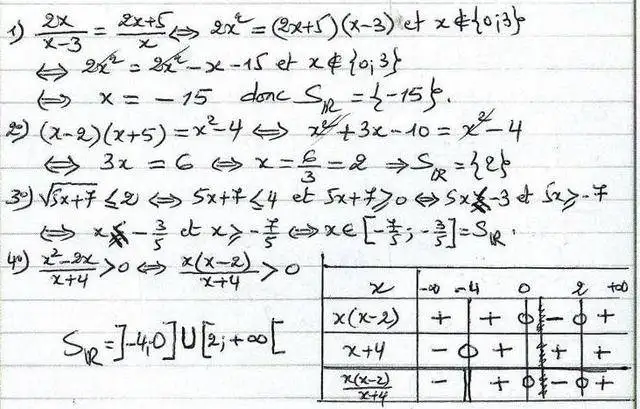 1) 2x/(x-3) = (2x+5)/x ⇔ 2x² = (2x+5)(x-3) et x ∉ {0;3}
⇔ 2x² = 2x² - x - 15 et x ∉ {0;3}
⇔ x = -15 donc S_IR = {-15}.
2°) (x-2)(x+5) = x²-4 ⇔ x² + 3x - 10 = x² - 4
⇔ 3x = 6 ⇔ x = 6/3 = 2 ⇒ S_IR = {2}
3°) √(5x+7) ≤ 2 ⇔ 5x+7 ≤ 4 et 5x+7 ≥ 0 ⇔ 5x ≤ -3 et 5x ≥ -7
⇔ x ≤ -3/5 et x ≥ -7/5 ⇔ x ∈ [-7/5 ; -3/5] = S_IR.
4°) (x²-2x)/(x+4) > 0 ⇔ x(x-2)/(x+4) > 0
x -∞ -4 0 2 +∞
x(x-2) + + 0 - 0 +
x+4 - 0 + + +
x(x-2)/(x+4) - || + 0 - 0 +
S_IR = ]-4;0] ∪ [2;+∞[